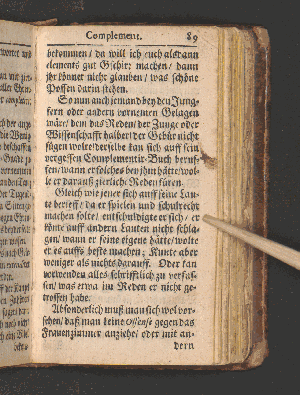 Complement. 89
bekommen/ da will ich euch alsdann
elements gut Gschirr machen/ dann
ihr könnet nicht glauben/ was schöne
Possen darin stehen.
So nun auch jemand bey den Jung-
fern oder andern vornemen Gelagen
wäre/ dem das Reden der Zunge oder
Wissenschafft halber/ der Gebür nicht
fügen wolte/ derselbe kan sich auff sein
vergessen Complementir-Buch beruf-
fen/ wann er solches bey ihm hätte/ wol-
le er darauß zierliche Reden füren.
Gleich wie jener sich auff seine Lau-
te berieff/ da er spielen und schulrecht
machen solte/ entschuldigte er sich/ er
köne auff andern Lauten nicht schla-
gen/ wann er seine eigene hätte/ wolte
er es auffs beste machen; Kunte aber
weniger als nichts darauff. Oder kan
vorwenden alles schrifftlich zu verfas-
sen/ was etwa im Reden er nicht ge-
troffen habe.
Absonderlich muß man sich wol vor-
sehen/ daß man keine Offense gegen das
Frauenzimmer anziehe/ oder mit an-
dern